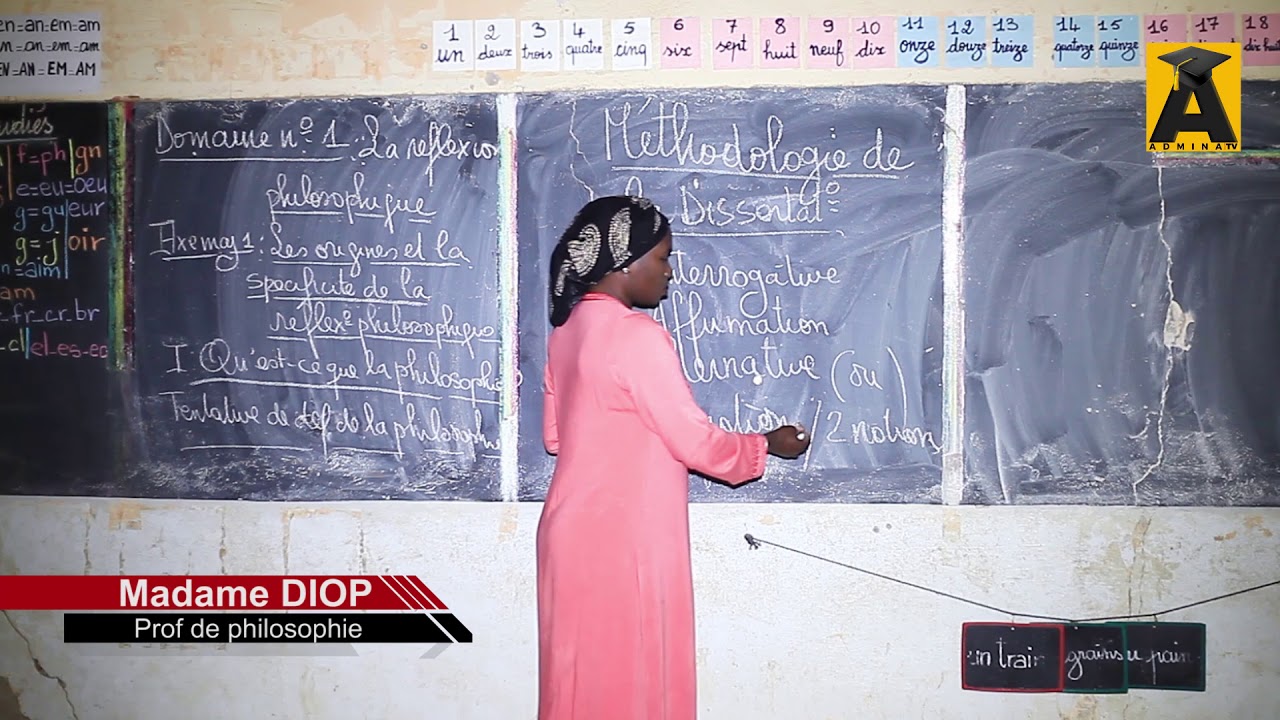 en=an=em=am
n=an=em=am
EN=AN=EM=AM
1 2 3 4 5 6 7 8 9 10 11 12 13 14 15 16 17 18
un deux trois quatre cinq six sept huit neuf dix onze douze treize quatorze quinze dix huit
ADMINATV
udiés
f=ph gn
e=eu=oeu
g=gu eur
g=j oir
am
fr-cr-br
cl el-es-ec
Domaine n° 1: La reflexion
philosophique
Les origines et la
specificité de la
reflex° philosophique
I: Qu'est-ce que la philosophie
Tentative de def de la philosophie
Méthodologie de
Dissertat°
terrogative
Affirmation
ternative (ou)
notion / 2 notions
Madame DIOP
Prof de philosophie
un train grains pain